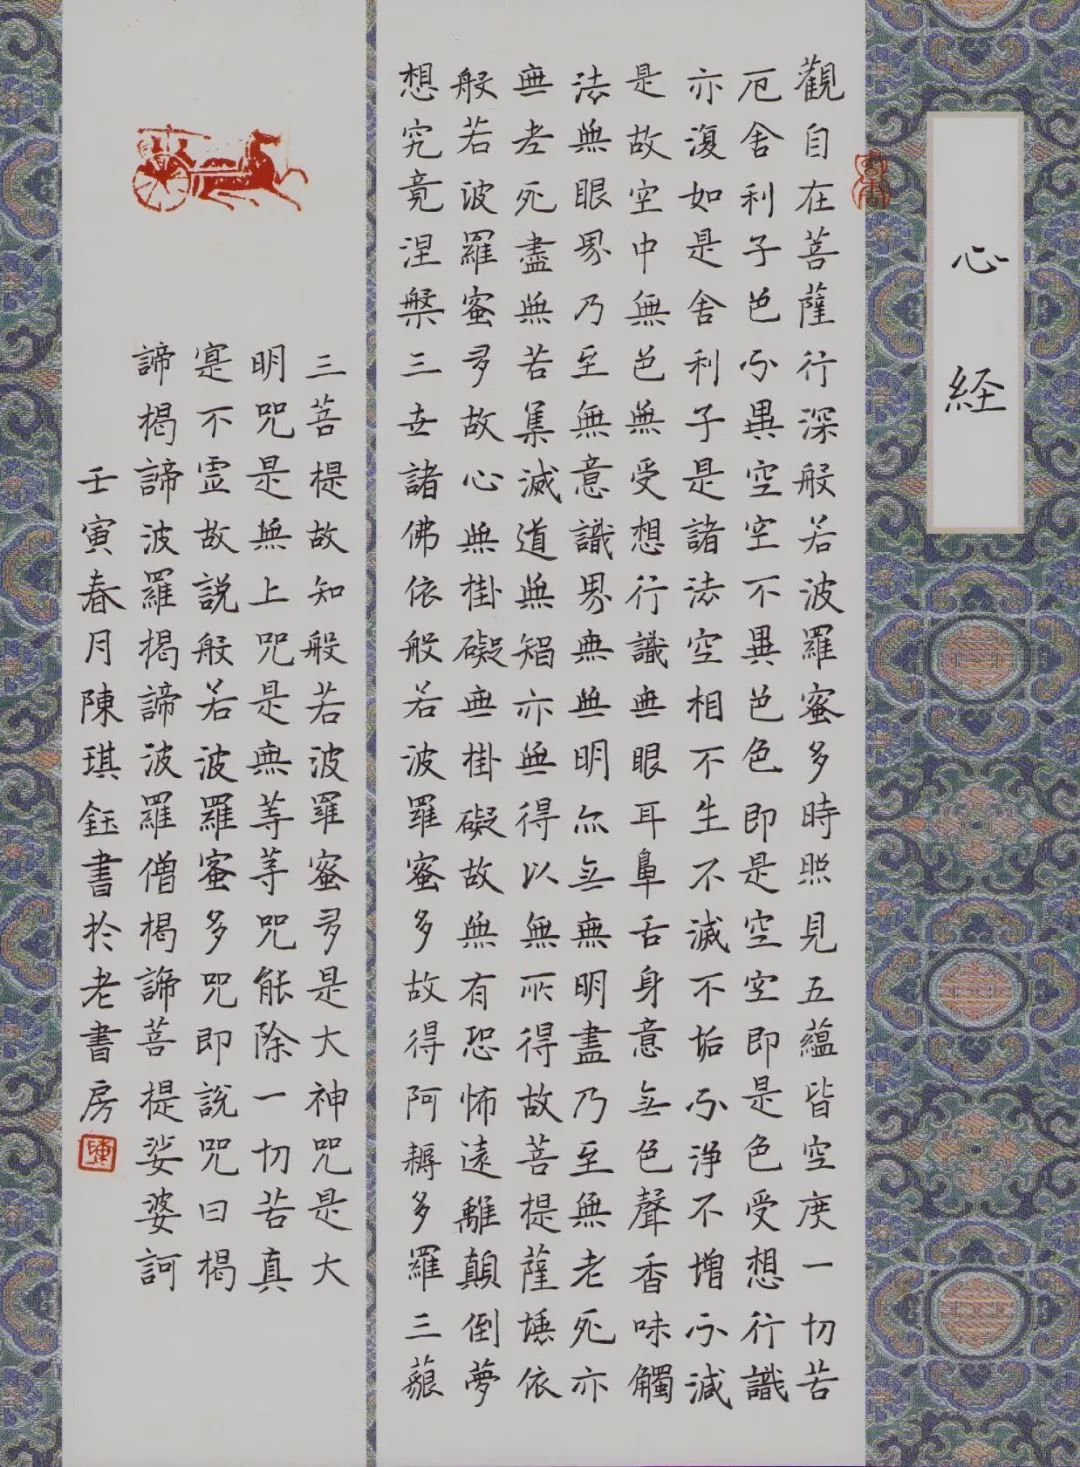 心経
觀自在菩薩行深般若波羅蜜多時照見五蘊皆空度一切苦
厄舍利子色不異空空不異色色即是空空即是色受想行識
亦復如是舍利子是諸法空相不生不滅不垢不淨不增不減
是故空中無色無受想行識無眼耳鼻舌身意無色聲香味觸
法無眼界乃至無意識界無無明亦無無明盡乃至無老死亦
無老死盡無苦集滅道無智亦無得以無所得故菩提薩埵依
般若波羅蜜多故心無掛礙無掛礙故無有恐怖遠離顛倒夢
想究竟涅槃三世諸佛依般若波羅蜜多故得阿耨多羅三藐
三菩提故知般若波羅蜜多是大神咒是大
明咒是無上咒是無等等咒能除一切苦真
寔不虛故說般若波羅蜜多咒即說咒曰揭
諦揭諦波羅揭諦波羅僧揭諦菩提娑婆訶
壬寅春月陳琪鈺書於老書房
陳